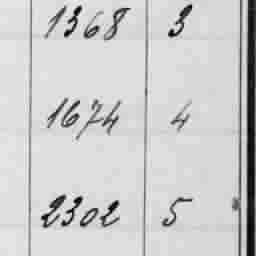 1368 3
1674 4
2302 5